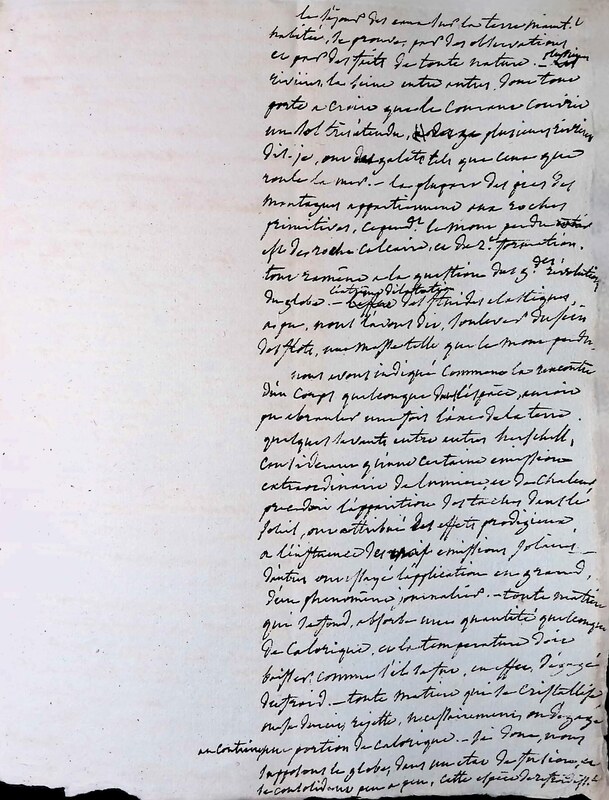 le séjour des eaux sur la terre maint.t
habitée, se prouve, par des observations
et par des faits de toute nature. — plusieurs
rivières, la Seine entre autres, dont tout
porte a croire que le courant couvrit
un sol très étendu, plusieurs rivières
dis-je, ont des galets tels que ceux que
roule la mer. — la plupart des pics des
montagnes appartiennent aux roches
primitives, cepend.t le mont perdu
est de roche calcaire, et de 2.e formation.
tout ramène a la question des g.des révolutions
du globe. — l'extrême dilatation des fluides elastiques,
a pu, nous l'avons dit, soulever du sein
des flots, une masse telle que le mont perdu.
nous avons indiqué comment la rencontre
d'un corps quelconque dans l'espace, auroit
pu ebranler une fois l'axe de la terre.
quelques savants entre autres herschell,
considérant qu'une certaine emission
extraordinaire de lumière, et de chaleur
précédoit l'apparition des taches dans le
soleil, ont attribué des effets prodigieux
a l'influence des emissions solaires —
d'autres ont essayé l'application en grand,
d'un phenomène journalier. — toute matière
qui se fond, absorbe une quantité quelconque
de calorique, et la température doit
baisser, comme s'il se fut, en effet, dégagé
du froid. — toute matiere qui se cristallise
ou se durcit, rejette, nécessairement, ou dégage
au contraire une portion de calorique. — Si donc, nous
supposons le globe, dans un etat de fusion, et
se consolidant peu a peu, cette espèce de refroidiss.t